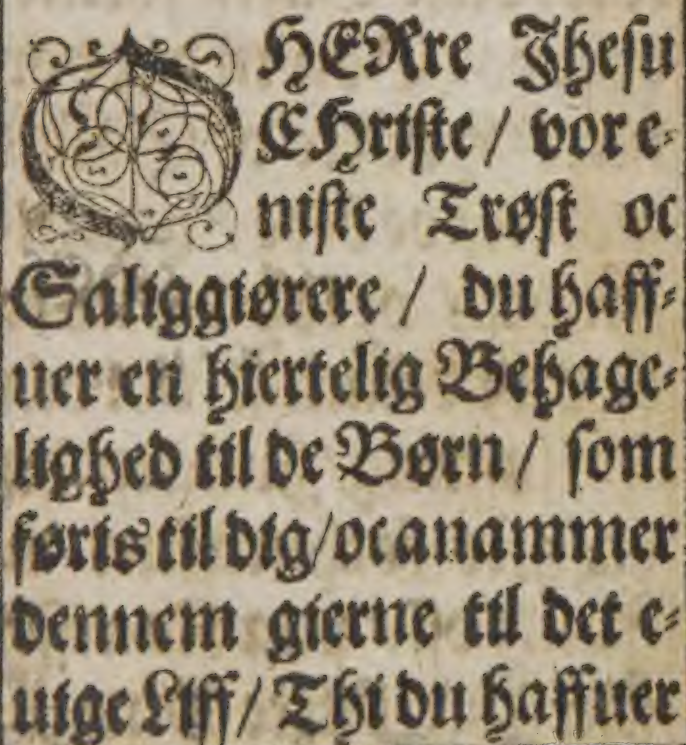 O HERre Jheſu
CHriſte / vor e-
niſte Trøſt oc
Saliggiørere / du haff-
uer en hiertelig Behage-
lighed til de Børn / ſom
føris til dig / oc anammer
dennem gierne til det e-
uige Liff / Thi du haffuer